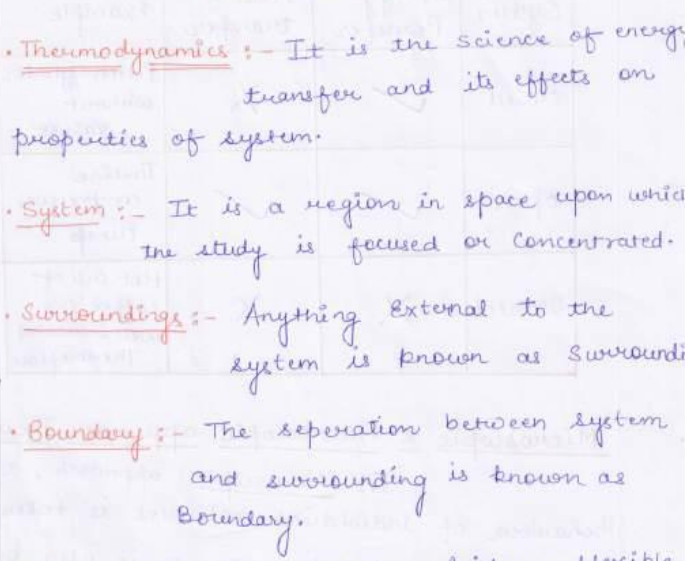 · Thermodynamics :- It is the science of energy
transfer and its effects on
properties of system.
· System :- It is a region in space upon whic
the study is focused or Concentrated.
· Surroundings :- Anything External to the
system is known as Surroundi
· Boundary :- The seperation between system
and surrounding is known as
Boundary.